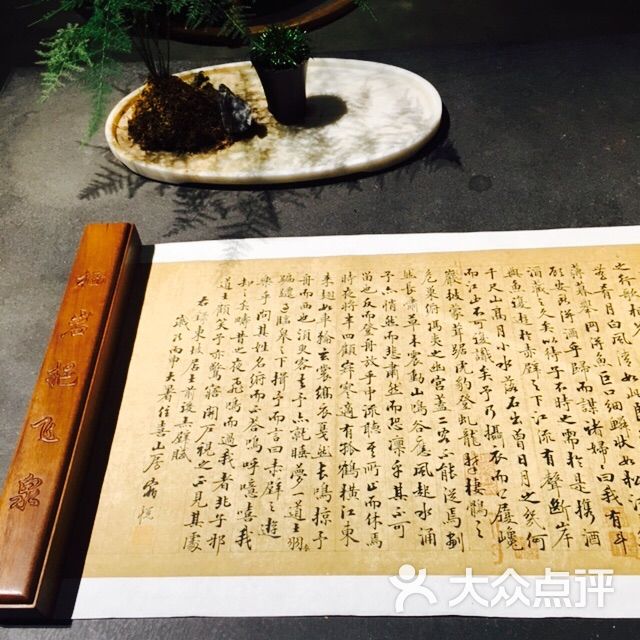 之行歌相
肴月白風清如此
薄暮舉网得魚巨口細鱗狀如松江
顧安所得酒乎歸而謀諸婦婦曰我有斗
酒藏之久矣以待子不時之需於是攜酒
與魚復遊於赤壁之下江流有聲斷岸
千尺山高月小水落石出曾日月之幾何
而江山不可復識矣予乃攝衣而上履巉
巖披蒙茸踞虎豹登虬龍攀棲鶻之
危巢俯馮夷之幽宮蓋二客不能從焉劃
然長嘯草木震動山鳴谷應風起水涌
予亦悄然而悲肅然而恐凜乎其不可
留也反而登舟放乎中流聽其所止而休焉
時夜將半四顧寂寥適有孤鶴橫江東
來翅如車輪玄裳縞衣戛然長鳴掠予
舟而西也須臾客去予亦就睡夢一道士羽衣
蹁躚過臨皋之下揖予而言曰赤壁之遊
樂乎問其姓名俛而不答嗚呼噫嘻我
知之矣疇昔之夜飛鳴而過我者非子也邪
道士顧笑予亦驚寤開戶視之不見其處
右錄東坡居士前後赤壁賦
枕岩挹飞泉
大众点评